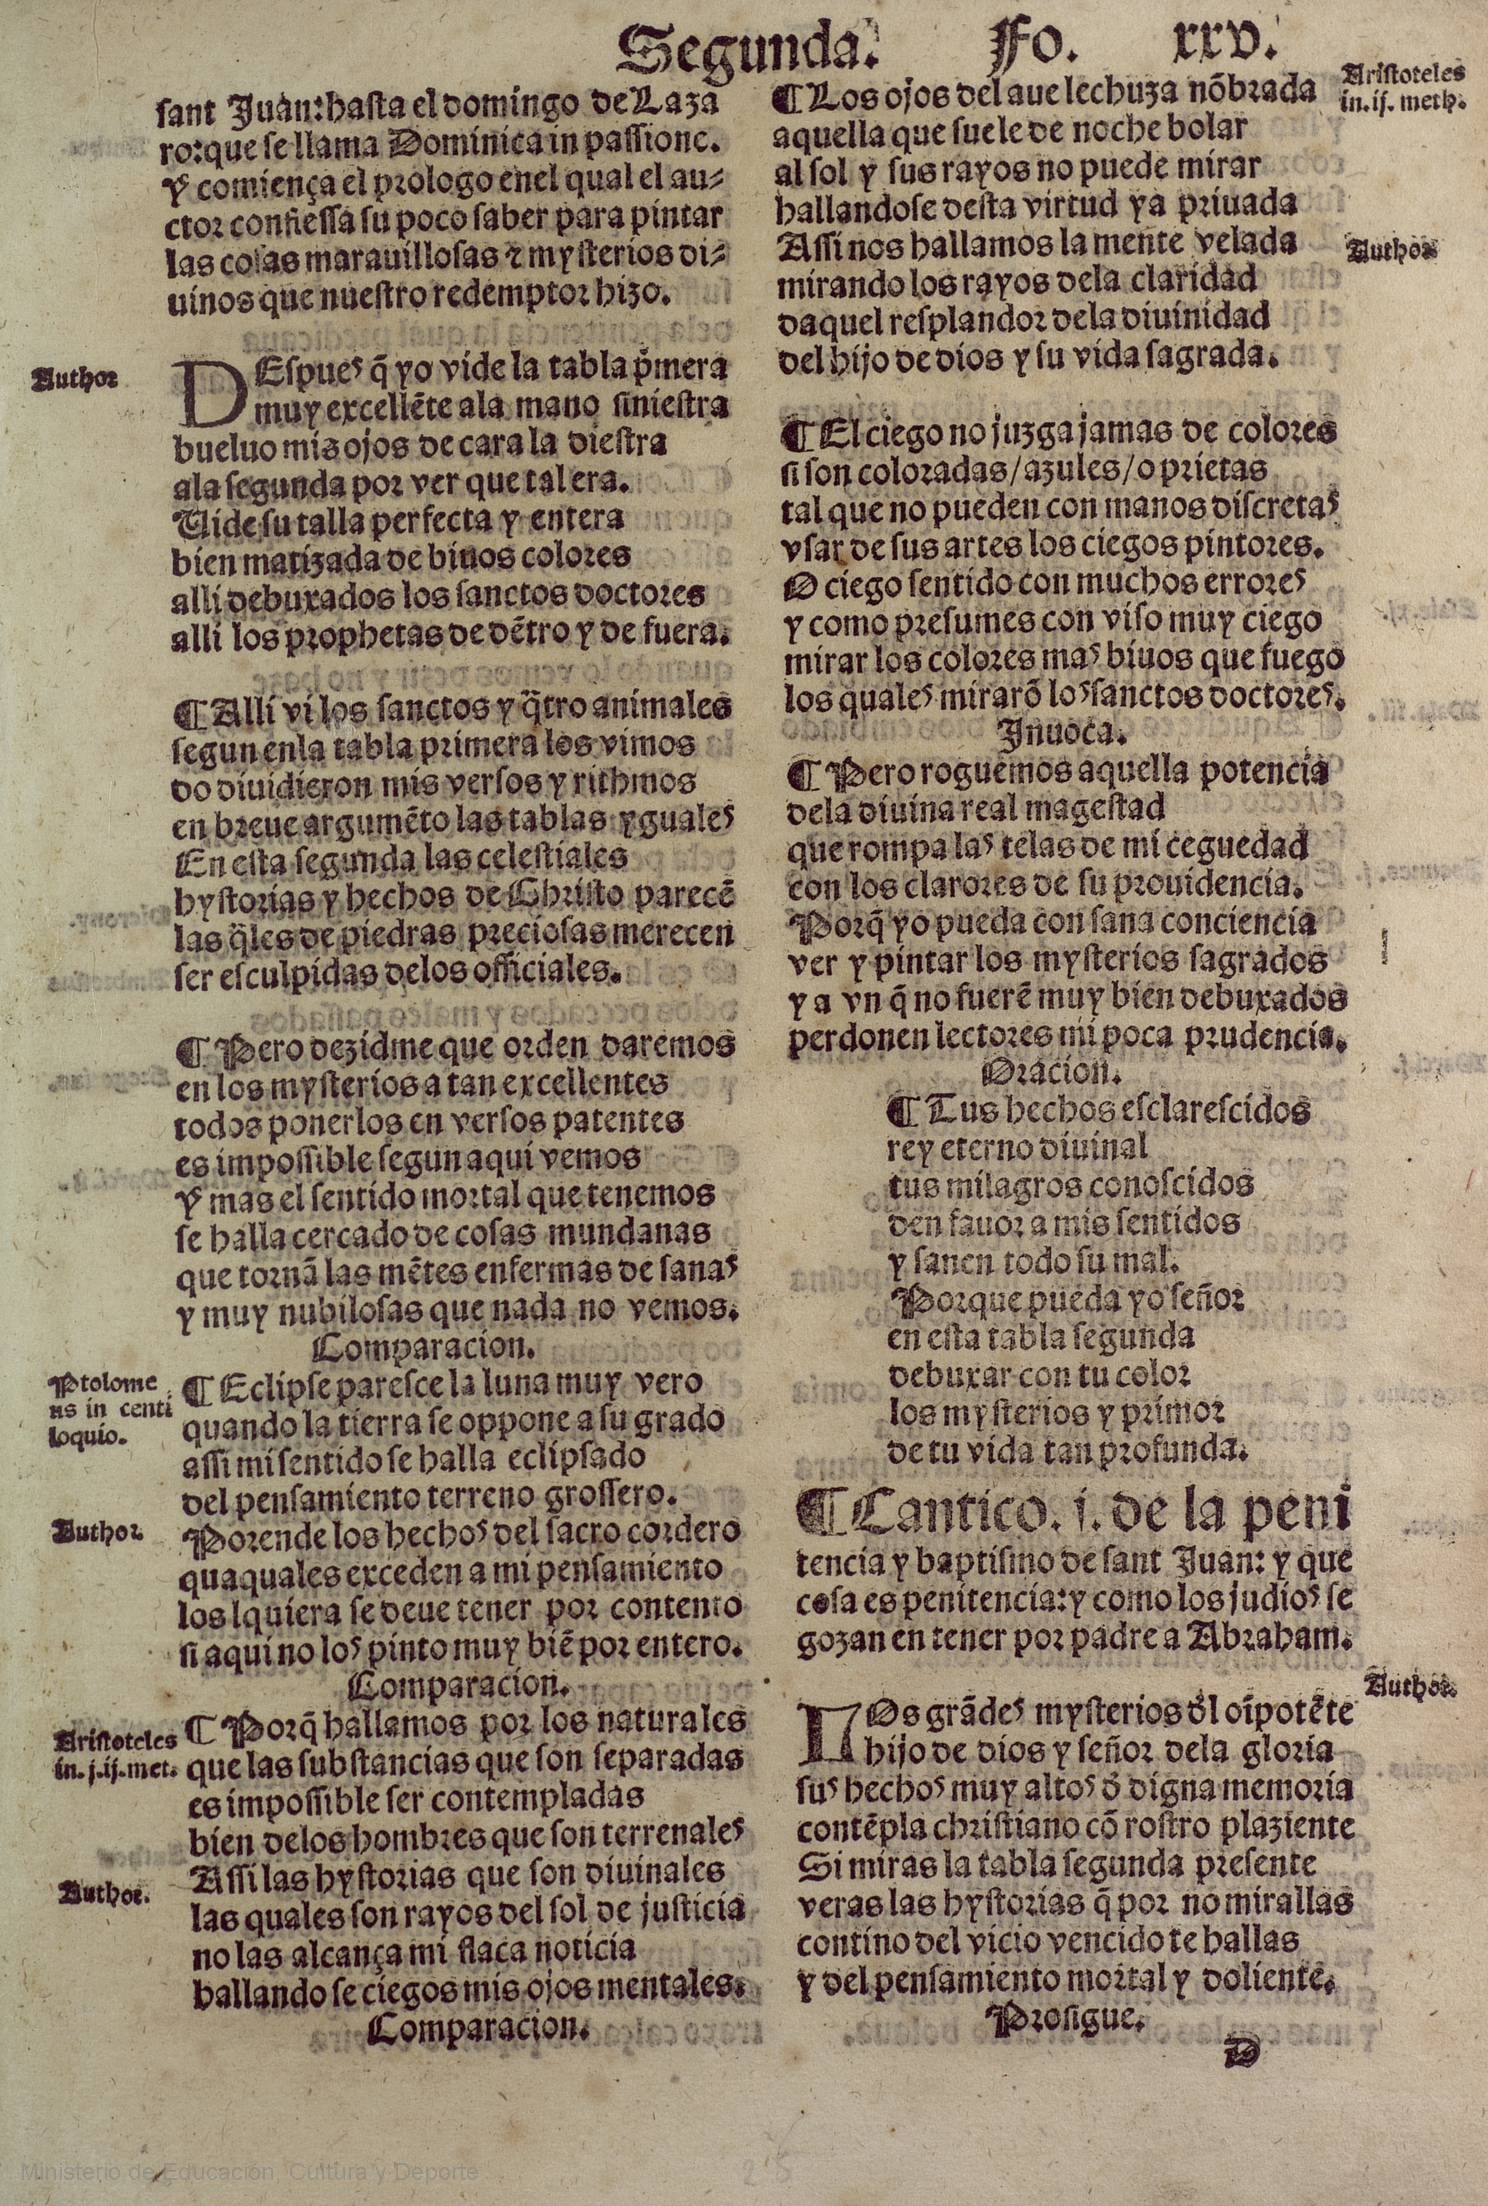 Segunda. Fo. xxv.
sant Juan: hasta el domingo de Laza
ro: que se llama Dominica in passione.
Y comiença el prologo enel qual el au-
ctor confiessa su poco saber para pintar
las cosas marauillosas ⁊ mysterios di-
uinos que nuestro redemptor hizo.
Author
DEspues q̃ yo vide la tabla p̃mera
muy excellẽte ala mano siniestra
bueluo mis ojos de cara la diestra
ala segunda por ver que tal era.
Uide su talla perfecta y entera
bien matizada de biuos colores
alli debuxados los sanctos doctores
alli los prophetas de dẽtro y de fuera.
¶ Alli vi los sanctos y q̃tro animales
segun enla tabla primera los vimos
do diuidieron mis versos y rithmos
en breue argumẽto las tablas yguales
En esta segunda las celestiales
hystorias y hechos de Christo parecẽ
las q̃les de piedras preciosas merecen
ser esculpidas delos officiales.
¶ Pero dezidme que orden daremos
en los mysterios a tan excellentes
todos ponerlos en versos patentes
es impossible segun aqui vemos
Y mas el sentido mortal que tenemos
se halla cercado de cosas mundanas
que tornã las mẽtes enfermas de sanas
y muy nubilosas que nada no vemos.
Comparacion.
Ptolome
us in centi
loquio.
¶ Eclipse paresce la luna muy vero
quando la tierra se oppone a su grado
assi mi sentido se halla eclipsado
del pensamiento terreno grossero.
Author.
Porende los hechos del sacro cordero
quaquales exceden a mi pensamiento
los lquiera se deue tener por contento
si aqui no los pinto muy biẽ por entero.
Comparacion.
Aristoteles
in. j. ij. met.
¶ Porq̃ hallamos por los naturales
que las substancias que son separadas
es impossible ser contempladas
bien delos hombres que son terrenales
Author.
Assi las hystorias que son diuinales
las quales son rayos del sol de justicia
no las alcança mi flaca noticia
hallando se ciegos mis ojos mentales.
Comparacion.
¶ Los ojos del aue lechuza nõbrada
Aristoteles
in. ij. meth.
aquella que suele de noche bolar
al sol y sus rayos no puede mirar
hallandose desta virtud ya priuada
Assi nos hallamos la mente velada
Author
mirando los rayos dela claridad
daquel resplandor dela diuinidad
del hijo de dios y su vida sagrada.
¶ El ciego no juzga jamas de colores
si son coloradas/azules/o prietas
tal que no pueden con manos discretas
vsar de sus artes los ciegos pintores.
O ciego sentido con muchos errores
y como presumes con viso muy ciego
mirar los colores mas biuos que fuego
los quales mirarõ los sanctos doctores.
Inuoca.
¶ Pero roguemos aquella potencia
dela diuina real magestad
que rompa las telas de mi ceguedad
con los clarores de su prouidencia.
Porq̃ yo pueda con sana conciencia
ver y pintar los mysterios sagrados
y a vn q̃ no fuerẽ muy bien debuxados
perdonen lectores mi poca prudencia.
Oracion.
¶ Tus hechos esclarescidos
rey eterno diuinal
tus milagros conoscidos
den fauor a mis sentidos
y sanen todo su mal.
Porque pueda yo señor
en esta tabla segunda
debuxar con tu color
los mysterios y primor
de tu vida tan profunda.
¶ Cantico. j. de la peni
tencia y baptismo de sant Juan: y que
cosa es penitencia: y como los judios se
gozan en tener por padre a Abraham.
Author.
LOs grãdes mysterios d̃l oĩpotẽte
hijo de dios y señor dela gloria
sus hechos muy altos d̃ digna memoria
contẽpla christiano cõ rostro plaziente
Si miras la tabla segunda presente
veras las hystorias q̃ por no mirallas
contino del vicio vencido te hallas
y del pensamiento mortal y doliente.
Prosigue.
D
Ministerio de Educación, Cultura y Deporte